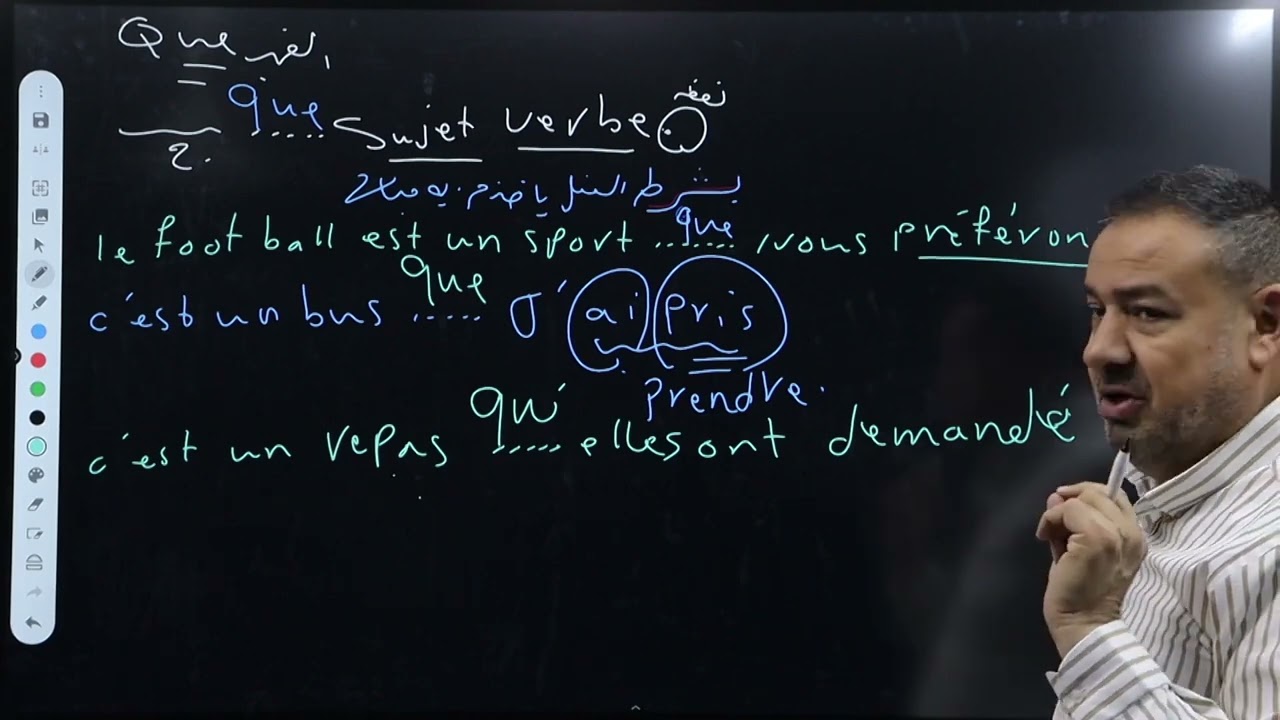 Que الذي
que Sujet verbe نقطة
2.
بشرط الفعل يا خذم به مباشر
le football est un sport ...que... nous préféron
c'est un bus ..que.. J'ai pris
prendre.
c'est un repas ..qu'.. elles ont demandé